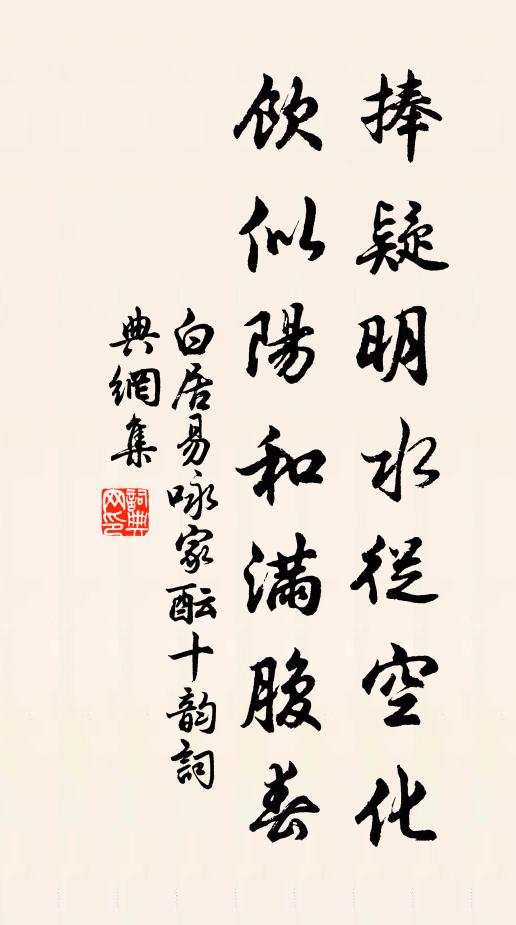 捧疑明水從空化
飲似陽和滿腹春
白居易咏家酝十韵詞
典網集
詞典网印